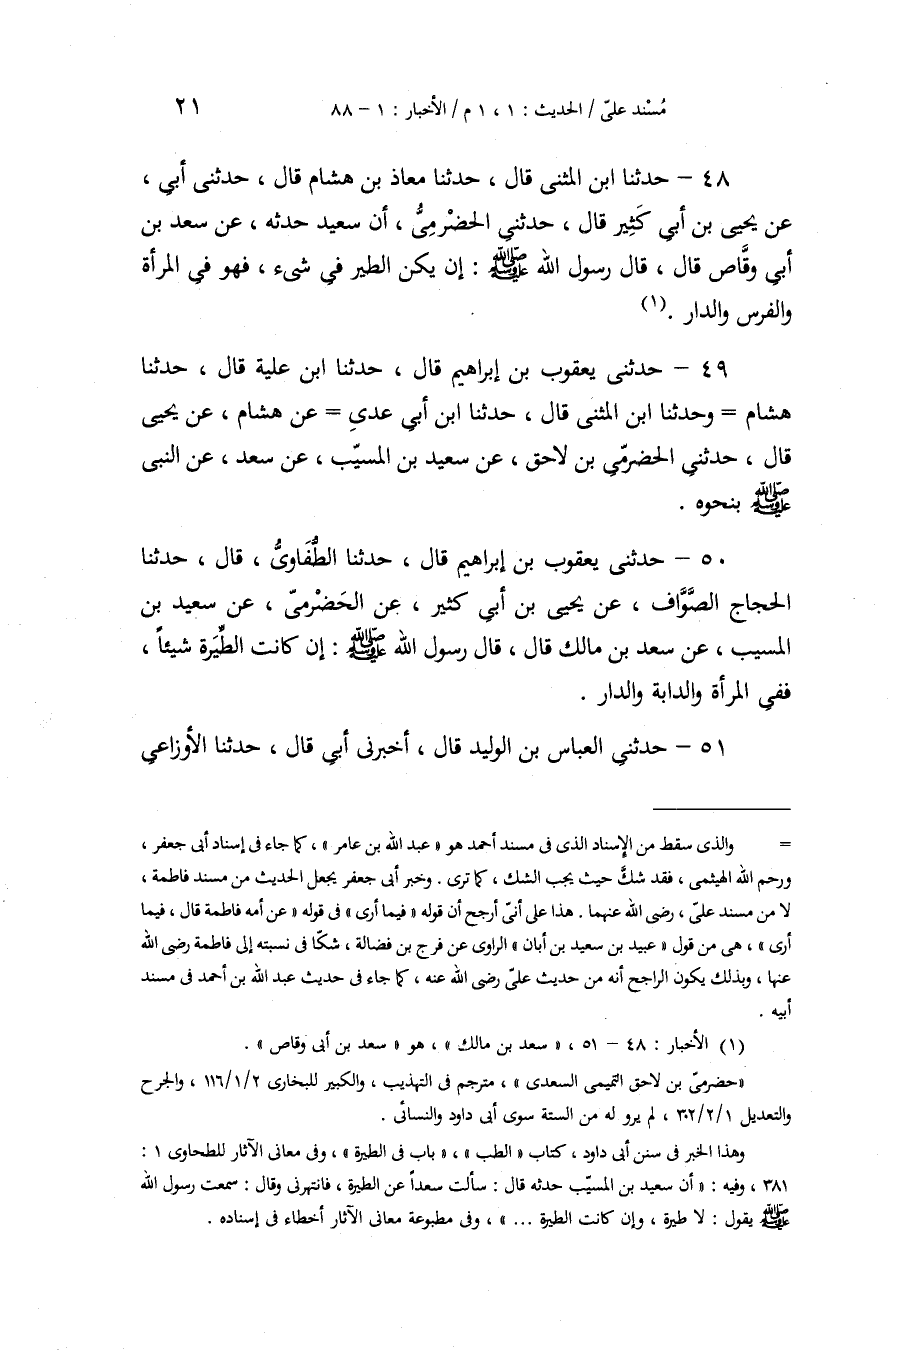 مُسْند علىّ / الحديث : ١ ، ١ م / الأخبار : ١ – ٨٨ ٢١
٤٨ – حدثنا ابن المثنى قال ، حدثنا معاذ بن هشام قال ، حدثنى أبي ،
عن يحيى بن أبي كَثِير قال ، حدثني الحضرْمِىُّ ، أن سعيد حدثه ، عن سعد بن
أبي وقَّاص قال ، قال رسول الله ﷺ : إن يكن الطير في شىء ، فهو في المرأة
والفرس والدار .(١)
٤٩ – حدثنى يعقوب بن إبراهيم قال ، حدثنا ابن علية قال ، حدثنا
هشام = وحدثنا ابن المثنى قال ، حدثنا ابن أبي عدي = عن هشام ، عن يحيى
قال ، حدثني الحضرمّي بن لاحق ، عن سعيد بن المسيّب ، عن سعد ، عن النبى
ﷺ بنحوه .
٥٠ – حدثنى يعقوب بن إبراهيم قال ، حدثنا الطُّفَاوىُّ ، قال ، حدثنا
الحجاج الصَّوَّاف ، عن يحيى بن أبي كثير ، عن الحَضْرمىّ ، عن سعيد بن
المسيب ، عن سعد بن مالك قال ، قال رسول الله ﷺ : إن كانت الطِّيَرة شيئاً ،
ففي المرأة والدابة والدار .
٥١ – حدثني العباس بن الوليد قال ، أخبرنى أبي قال ، حدثنا الأوزاعي
= والذى سقط من الإسناد الذى فى مسند أحمد هو « عبد الله بن عامر » ، كما جاء فى إسناد أبى جعفر ،
ورحم الله الهيثمى ، فقد شكَّ حيث يجب الشك ، كما ترى . وخبر أبى جعفر يجعل الحديث من مسند فاطمة ،
لا من مسند علىّ ، رضى الله عنهما . هذا على أنىّ أرجح أن قوله « فيما أرى » فى قوله « عن أمه فاطمة قال ، فيما
أرى » ، هى من قول « عبيد بن سعيد بن أبان » الراوى عن فرج بن فضالة ، شكّا فى نسبته إلى فاطمة رضى الله
عنها ، وبذلك يكون الراجح أنه من حديث علىّ رضى الله عنه ، كما جاء فى حديث عبد الله بن أحمد فى مسند
أبيه .
(١) الأخبار : ٤٨ – ٥١ ، « سعد بن مالك » ، هو « سعد بن أبى وقاص » .
«حضرمىّ بن لاحق التميمى السعدى » ، مترجم فى التهذيب ، والكبير للبخارى ١١٦/١/٢ ، والجرح
والتعديل ٣٠٢/٢/١ ، لم يرو له من الستة سوى أبى داود والنسائى .
وهذا الخبر فى سنن أبى داود ، كتاب « الطب » ، « باب فى الطيرة » ، وفى معانى الآثار للطحاوى ١ :
٣٨١ ، وفيه : « أن سعيد بن المسيّب حدثه قال : سألت سعداً عن الطيرة ، فانتهرنى وقال : سمعت رسول الله
ﷺ يقول : لا طيرة ، وإن كانت الطيرة ... » ، وفى مطبوعة معانى الآثار أخطاء فى إسناده .